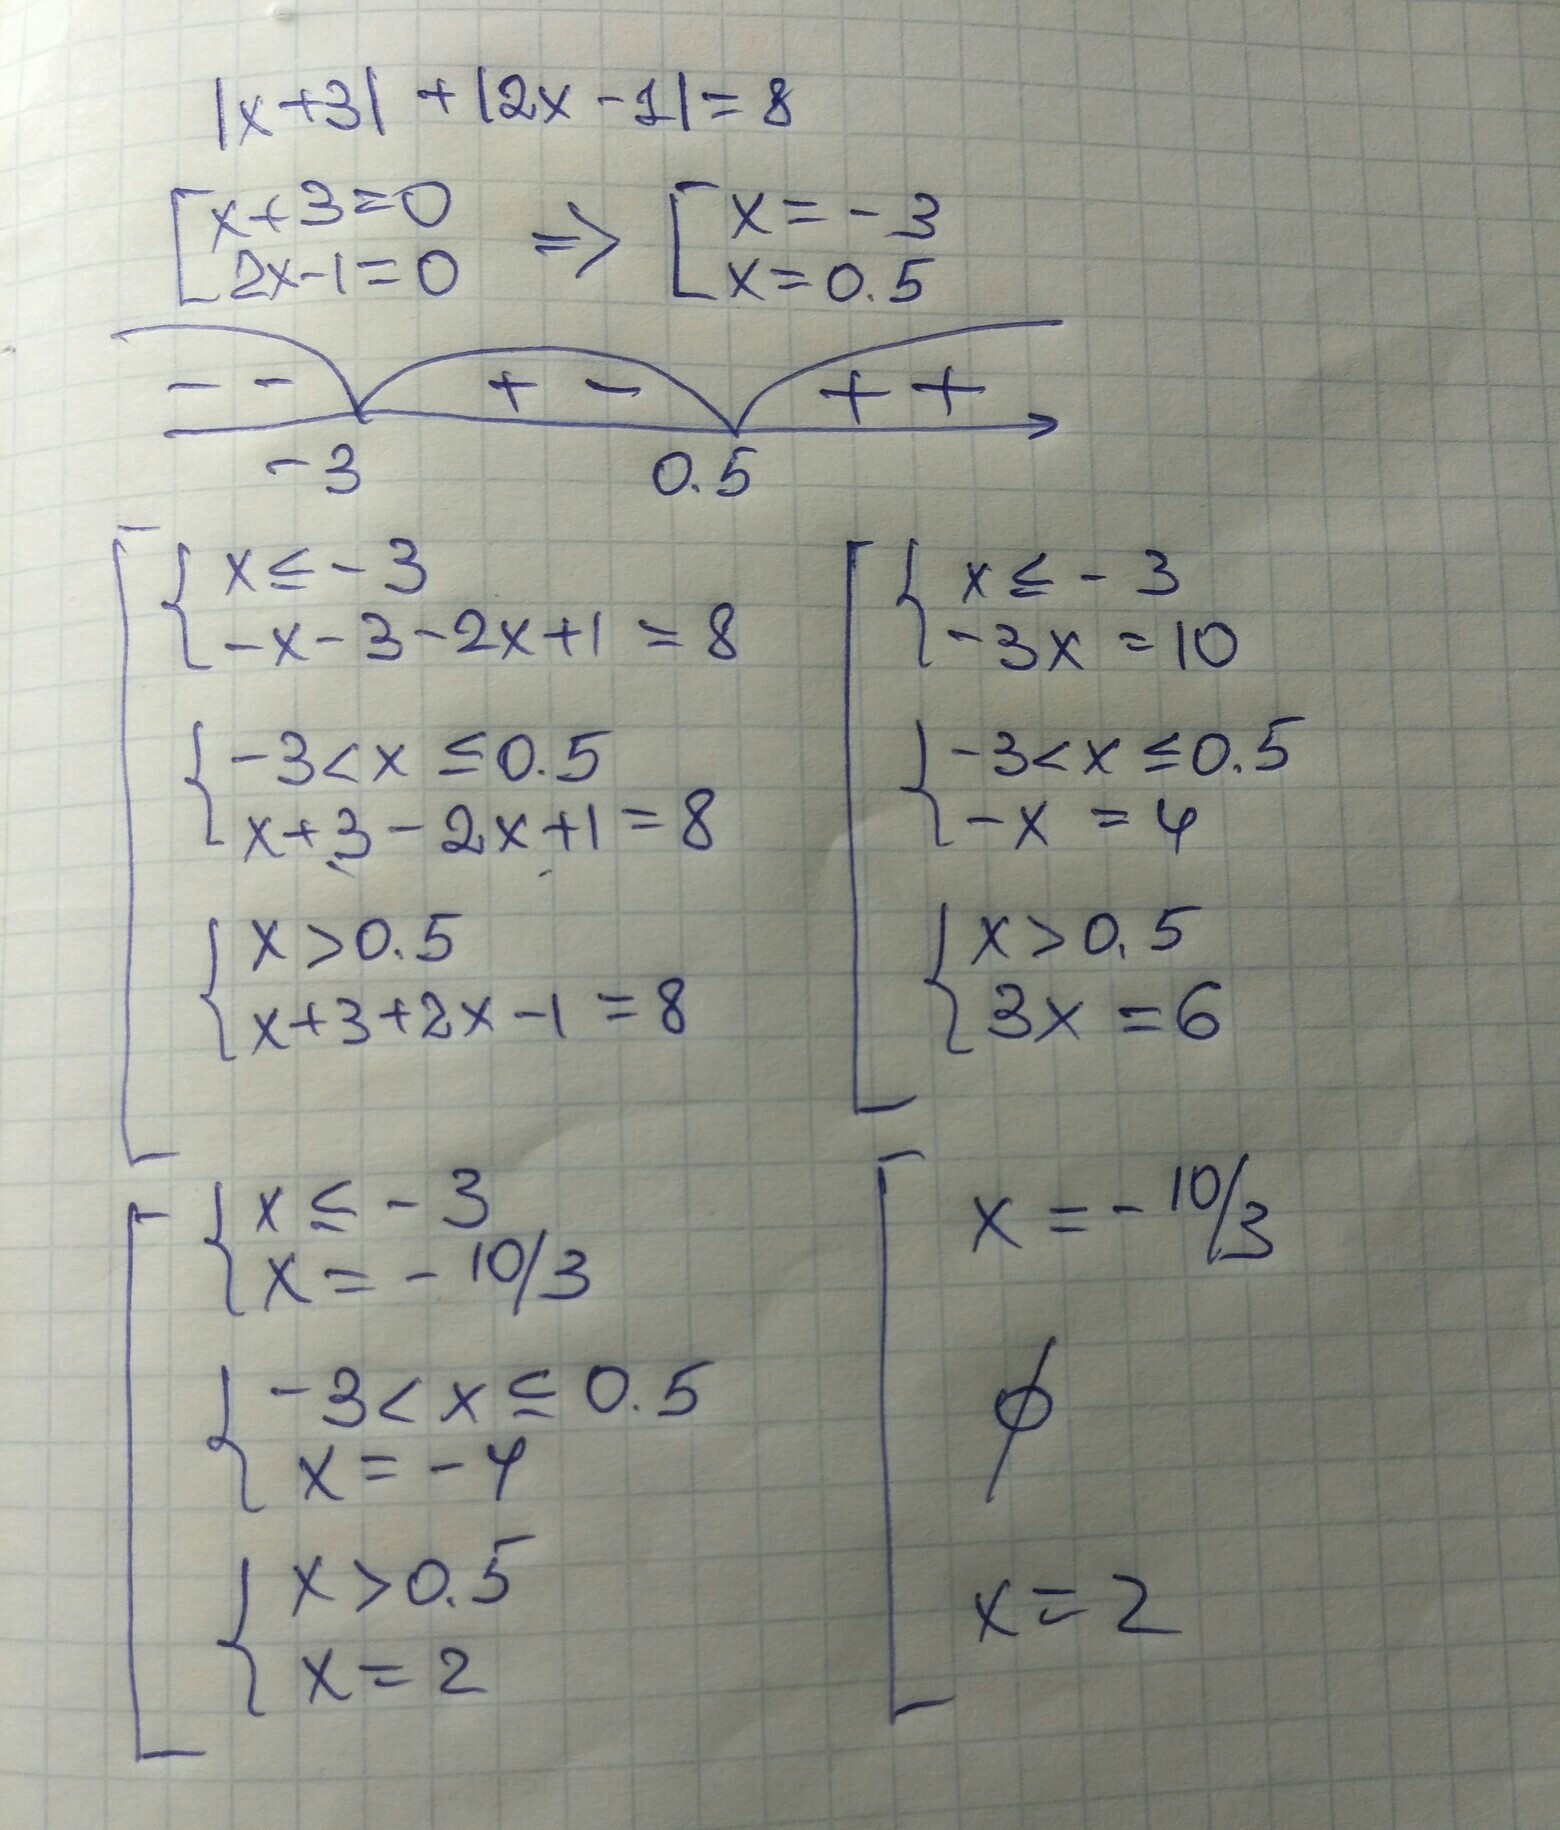 |x+3| + |2x-1| = 8
[x+3=0 => [x=-3
2x-1=0 x=0.5
- - + - + +
-3 0.5
x≤-3
-x-3-2x+1=8
-3<x≤0.5
x+3-2x+1=8
x>0.5
x+3+2x-1=8
x≤-3
-3x=10
-3<x≤0.5
-x=4
x>0.5
3x=6
x≤-3
x=-10/3
-3<x≤0.5
x=-4
x>0.5
x=2
x=-10/3
∅
x=2